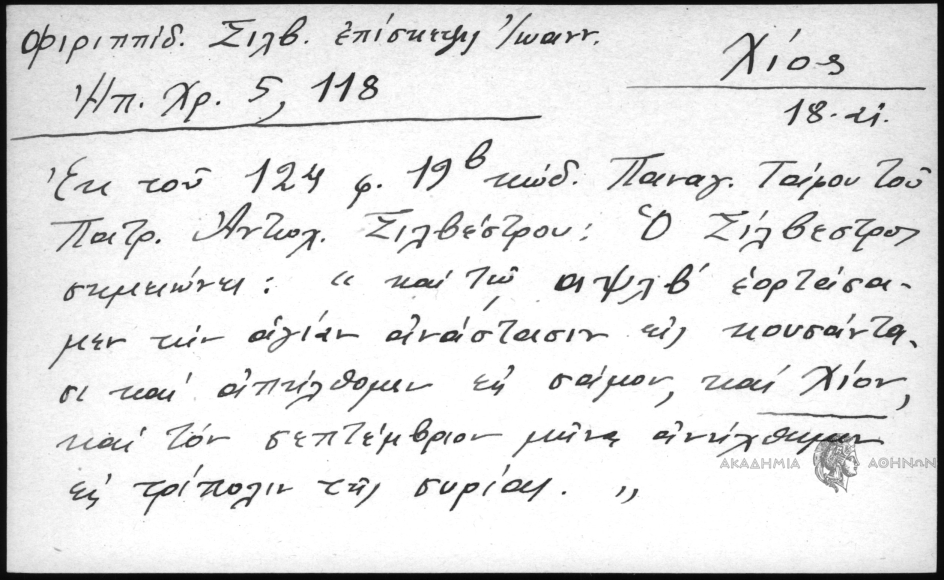 Φιριππίδ. Σιλβ. ἐπίσκεψις Ἰωανν.
Χίος
Ἠπ. Χρ. 5, 118
18. αι.
Ἐκ τοῦ 124 φ. 19β κώδ. Παναγ. Τάφου τοῦ
Πατρ. Ἀντιοχ. Σιλβέστρου: Ὁ Σίλβεστρος
σημειώνει: "καί τῶ αψλβ' ἑορτάσα-
μεν τήν ἁγίαν ἀνάστασιν εἰς κουσάντα-
σι καί ἀπήλθομεν εἰς σάμον, καί Χίον,
καί τόν σεπτέμβριον μῆνα ἀνήχθημεν
εἰς τρίπολιν τῆς συρίας. "
ΑΚΑΔΗΜΙΑ ΑΘΗΝΩΝ